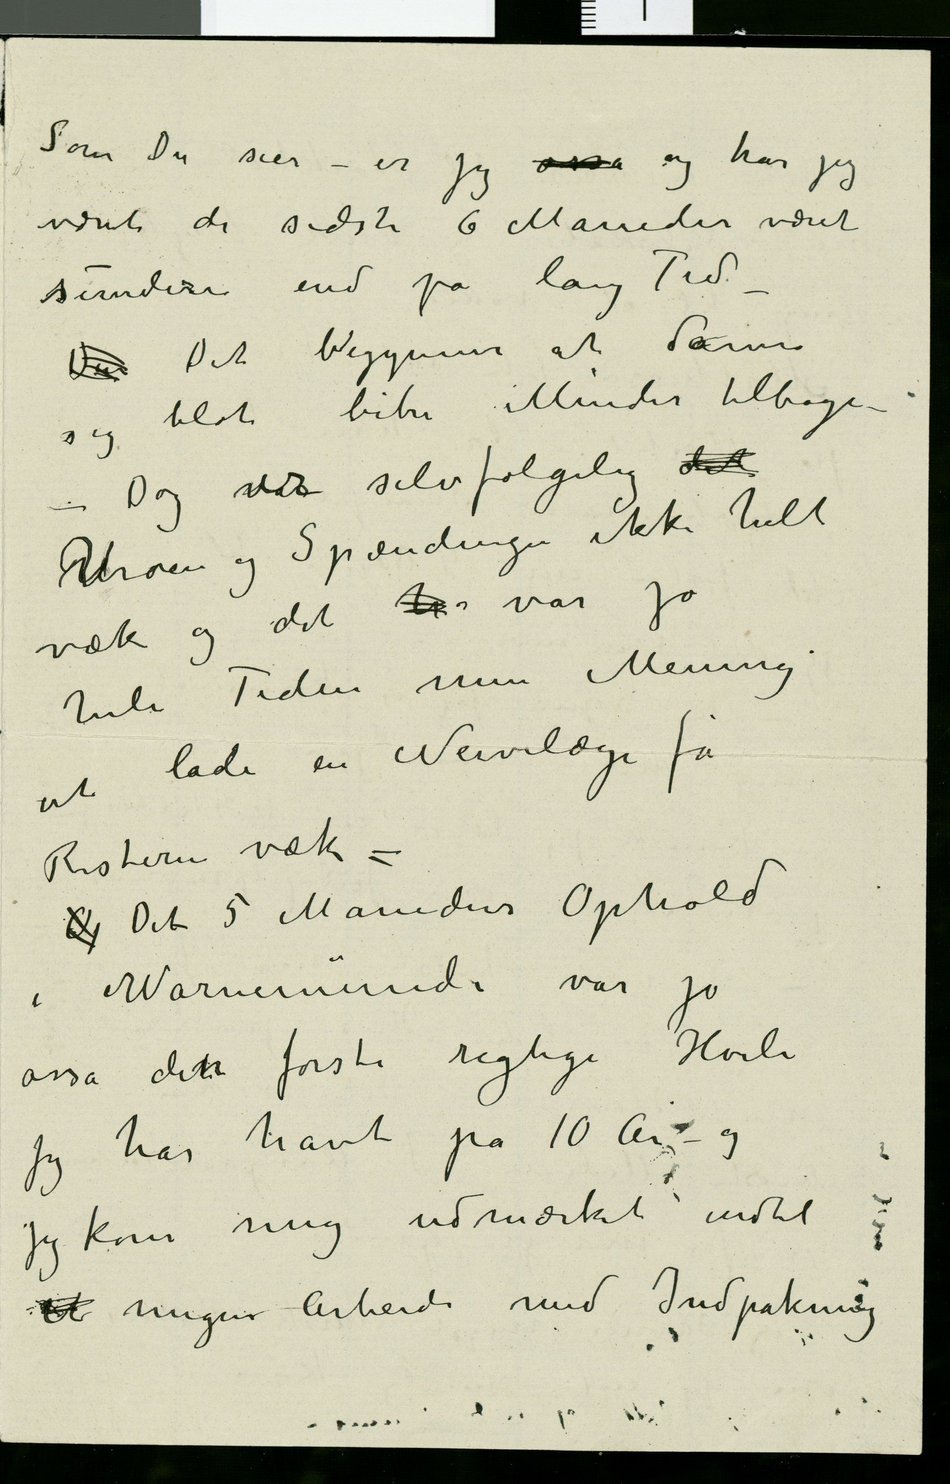 Som Du sier – er jeg ossa og har jeg
vært de sidste 6 Maneder været
sundere end på lang Tid –
Du Det begynner at danne
sig blot bitre Minder tilbage –
– Dog var selvfølgelig det
Uroen og Spændingen ikke helt
væk og det var jo
hele Tiden min Mening
at lade en Nervelæge få
Resterne væk –
Og Det 5 Maneders Ophold
i Warnemünde var jo
ossa den første rigtige Hvile
jeg har havt på 10 År – og
jeg kom mig udmærket indtil
et meget Arbeide med Indpakning